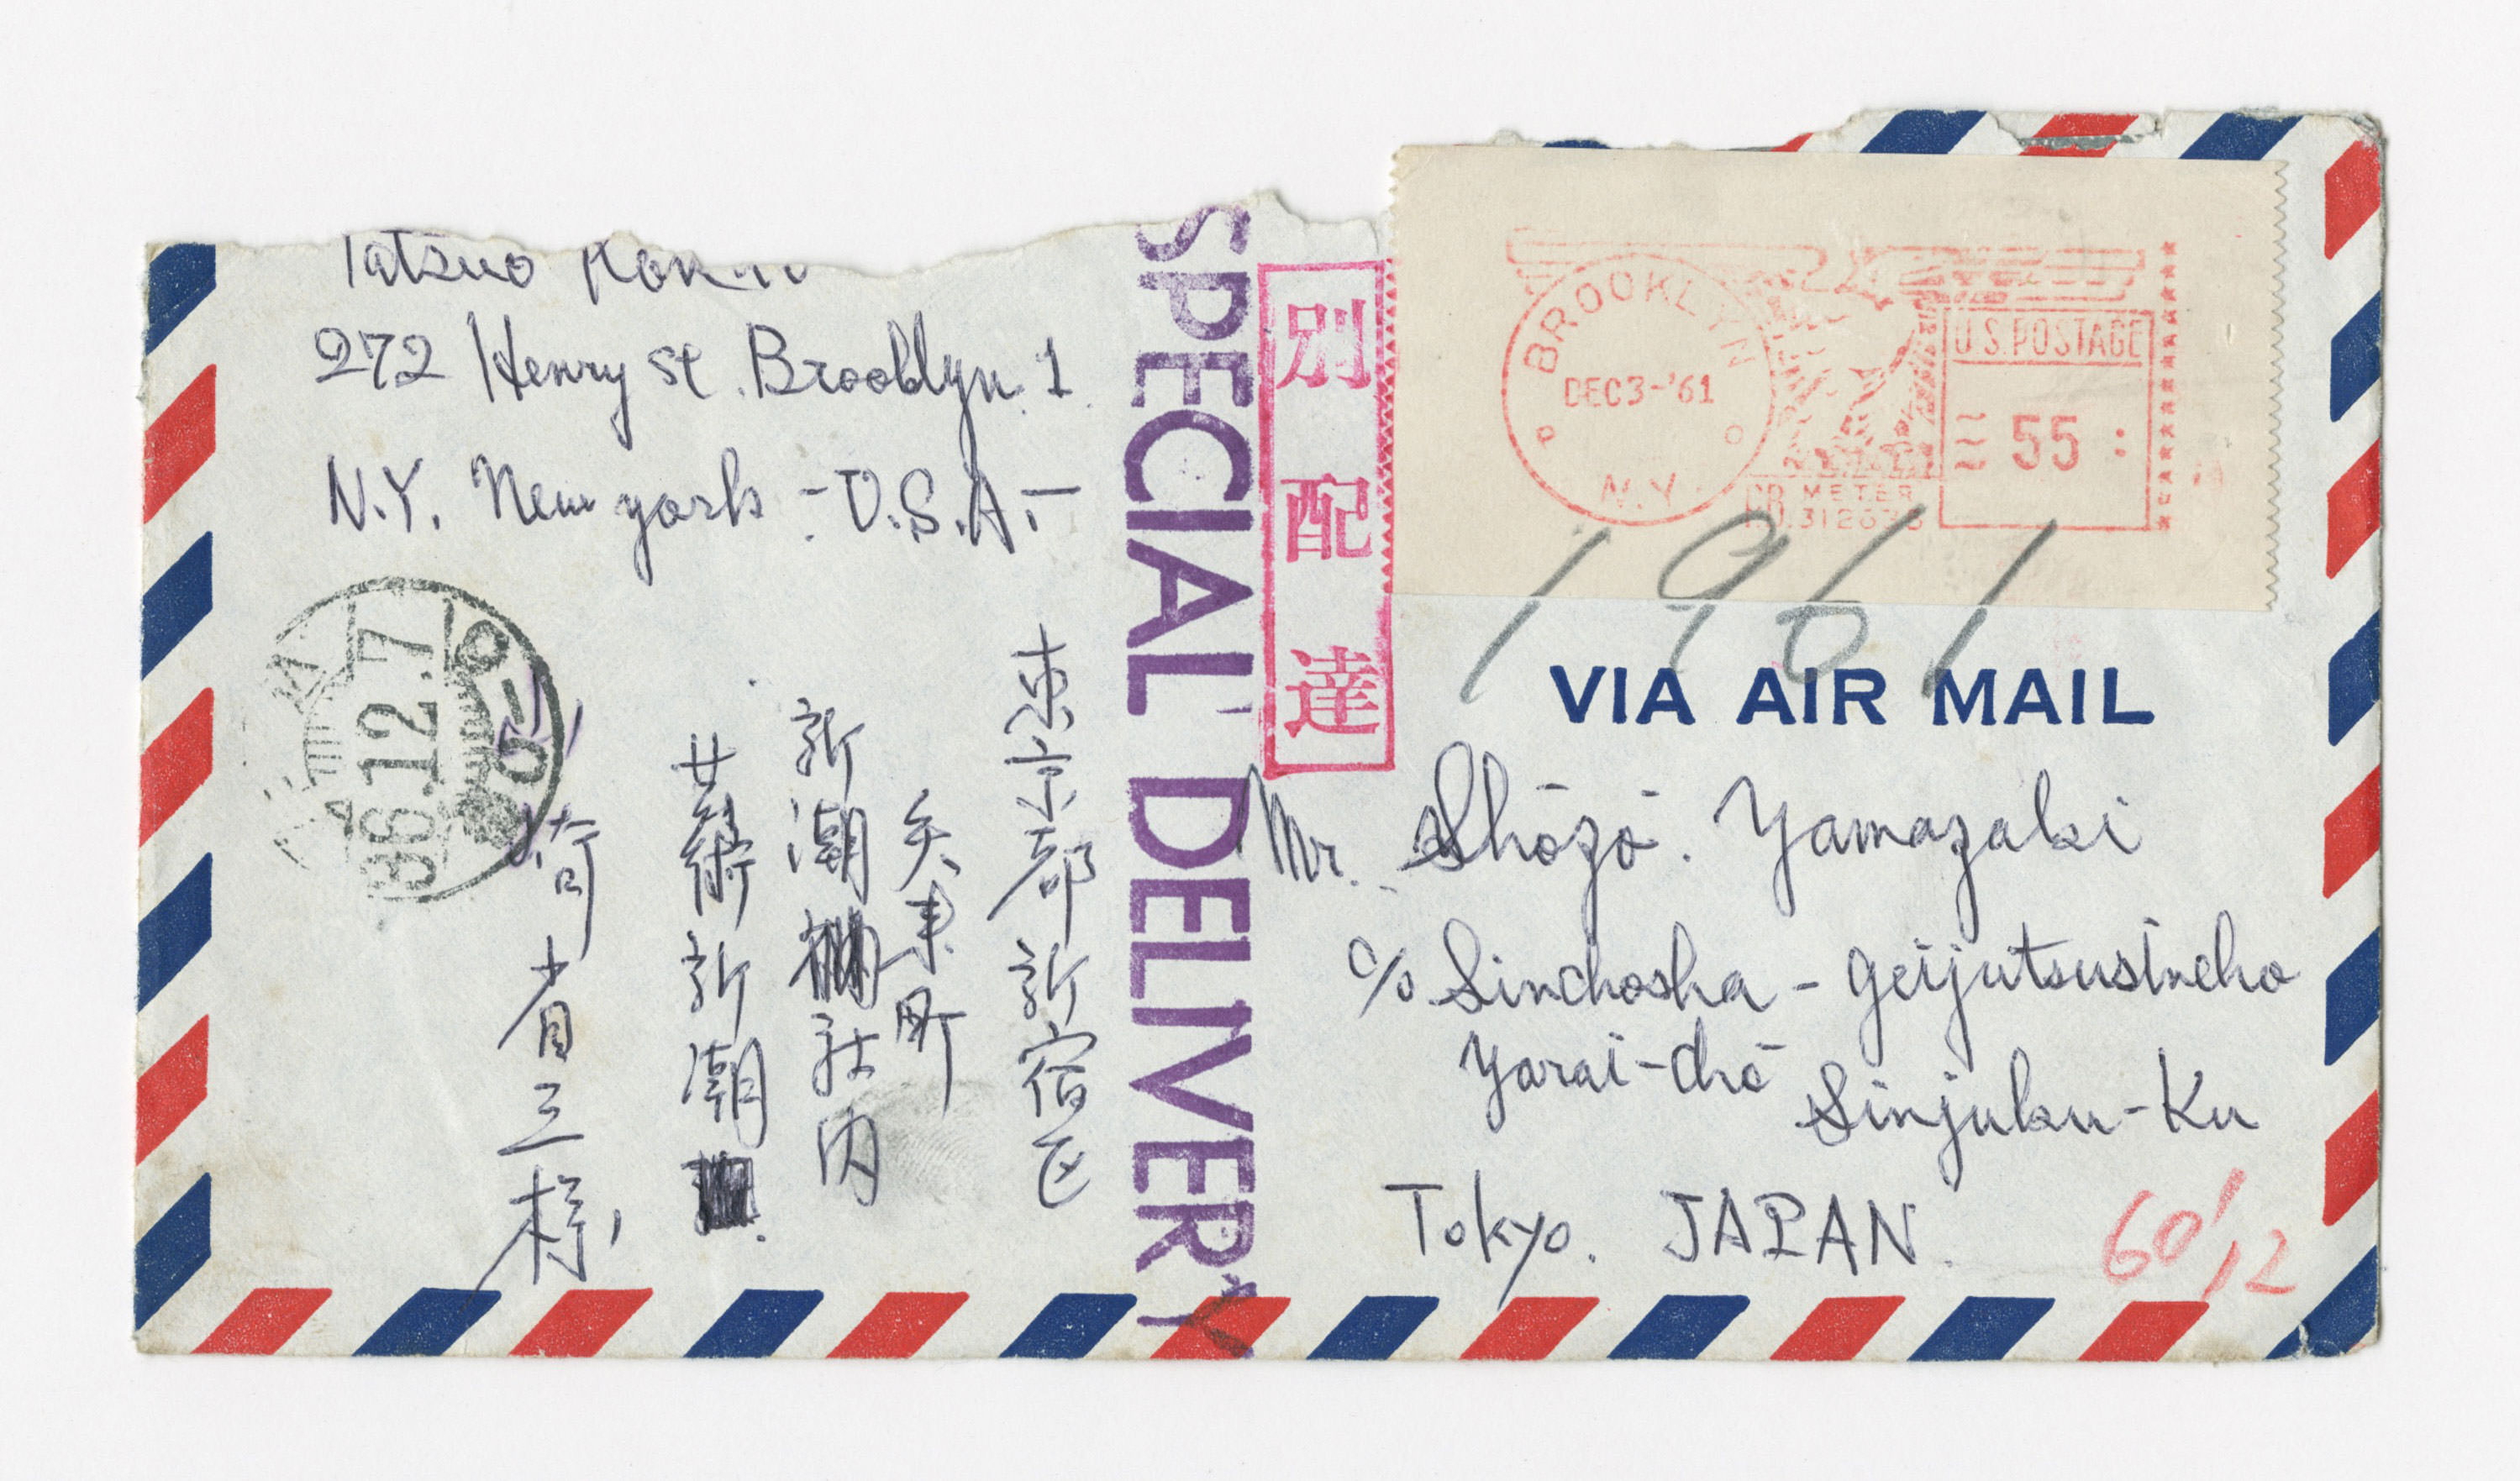 Tatsuo
272 Henry St. Brooklyn. 1
N.Y. New york - U.S.A. -
SPECIAL DELIVERY
別配達
BROOKLYN
DEC 3-'61
N.Y.
U.S. POSTAGE
55
PB. METER
1961
VIA AIR MAIL
Mr. Shōzō. Yamazaki
c/o Sinchosha - geijutsusincho
Yarai-chō
Sinjuku-Ku
Tokyo. JAPAN.
60'/12
東京都新宿区
矢来町
新潮社内
芸術新潮
山崎省三様
12.7